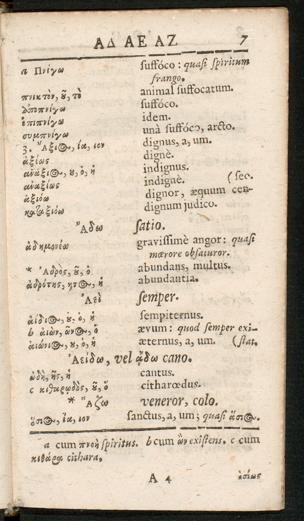 ΑΔ ΑΕ ΑΖ 7
a Πνίγω suffóco: quasi spiritum
frango.
πνικτὸν, ȣ͂, τὸ animal suffocatum.
ἀποπνίγω suffóco.
ἐπιπνίγω idem.
συμπνίγω unà suffóco, arcto.
3. Ἄξιος, ία, ιον dignus, a, um.
ἀξίως dignè.
ἀνάξιος, ȣ, ὁ, ἡ indignus.
ἀναξίως indignè. (seo.
ἀξιόω dignor, æquum cen-
καταξιόω dignum judico.
Ἄδω satio.
ἀδημονέω gravissimè angor: quasi
mœrore obsaturor.
* Ἁδρὸς, ȣ͂, ὁ abundans, multus.
ἁδρότης, ητος, ἡ abundantia.
Ἀεὶ semper.
ἀίδιος, ȣ, ὁ, ἡ sempiternus.
b αἰὼν, ῶνος, ὁ ævum: quod semper exi-
αἰώνιος, ȣ, ὁ, ἡ æternus, a, um. (stat.
Ἀείδω, vel ᾄδω cano.
ᾠδὴ, ῆς, ἡ cantus.
c κιθαρῳδὸς, ȣ͂, ὁ citharœdus.
* Ἄζω veneror, colo.
ὅσιος, ία, ιον sanctus, a, um; quasi ἅσιος.
a cum πνοὴ spiritus. b cum ὢν existens. c cum
κιθάρα cithara.
A 4 ὁσίως